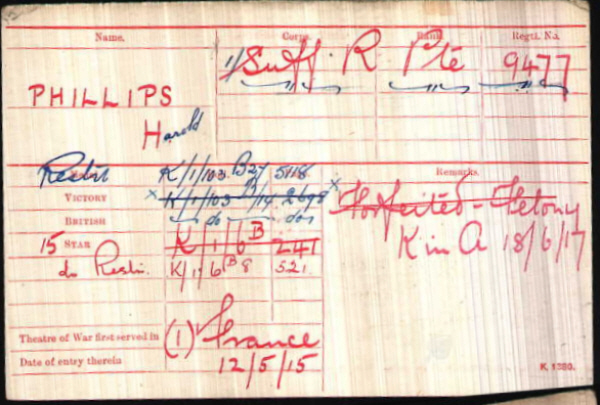 Name. Corps. Rank. Regtl. No.
1/ Suff. R Pte 9477
PHILLIPS
Harold
Restn K/1/103 B27 5118 Remarks.
VICTORY x K/1/103 B/14 2698 x Forfeited - Felony
BRITISH - do - do
15 STAR K/1/6 B 241 K in A 18/6/17
do Restn. K/1/6 B 8 521.
Theatre of War first served in (1) France
Date of entry therein 12/5/15
K. 1380.